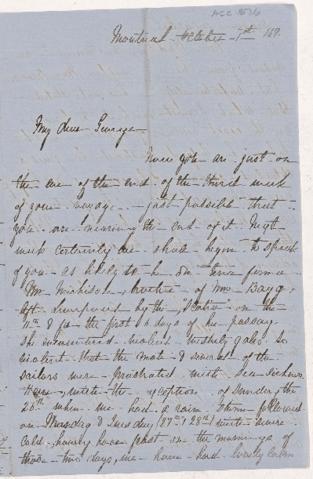 Montreal October 7th 18
My dear George
Now you are just on
the eve of the end of the third week
of your voyage just possible that
you are nearing the end of it Next
week certainly we shall begin to speak
of you as likely to be on terra firma
Mr brother of Mrs Bagg
left Liverpool by the on the
& for the first 6 days of her passage
she encountered violent westerly gales so
violent that the mate & several of the
sailors were prostrated with Sea Sickness
with the exception of Sunday the
26th when we had a rain storm followed
on Monday & Tuesday 27th & 28th with severe
cold heavy hoar frost in the mornings of
those two days, we have had lovely